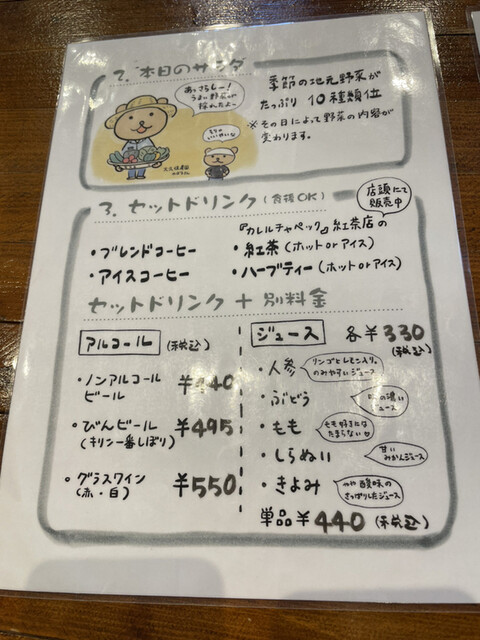 2. 本日のサラダ
季節の地元野菜が
たっぷり 10種類位
※その日によって野菜の内容が
変わります。
3. セットドリンク (食後OK)
店頭にて
販売中
『カレルチャペック』紅茶店の
・ブレンドコーヒー
・紅茶 (ホット or アイス)
・アイスコーヒー
・ハーブティー (ホット or アイス)
セットドリンク + 別料金
アルコール (税込)
・ノンアルコール
ビール
・びんビール ¥495
(キリン一番しぼり)
・グラスワイン ¥550
(赤・白)
ジュース 各¥330
(税込)
・人参
リンゴとレモン入り。
のみやすいジュース
・ぶどう
の濃い
ジュース
・もも
もも好きには
たまらない
・しらぬい
甘い
みかんジュース
・きよみ
やや酸味の
さっぱりしたジュース
単品 ¥440 (税込)